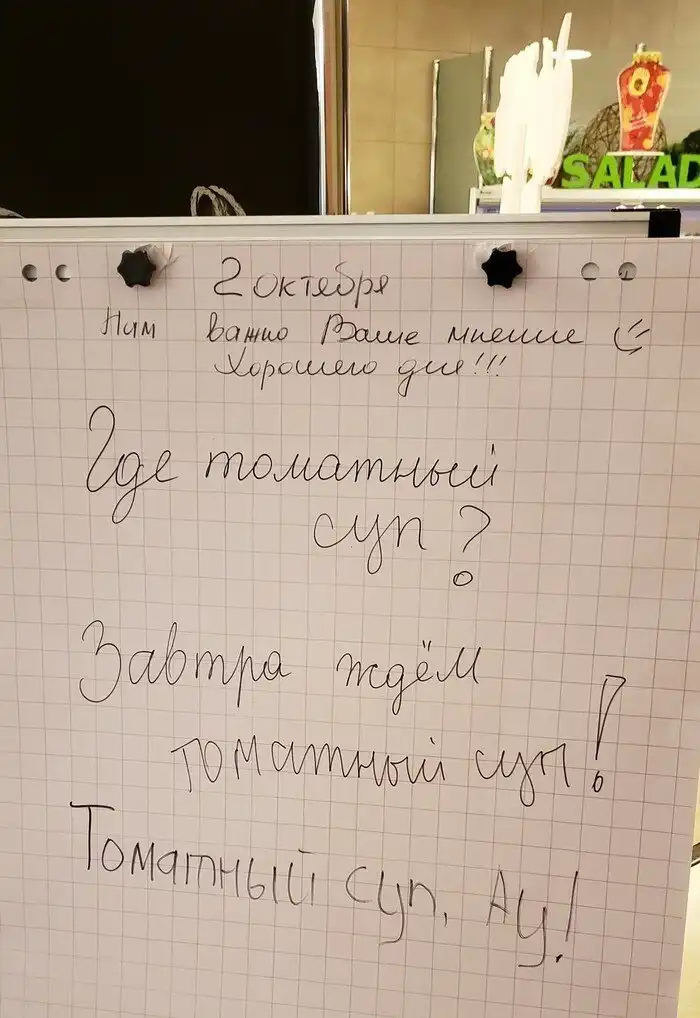 SALAD
2 октября
Нам важно Ваше мнение
Хорошего дня!!!
Где томатный
суп?
Завтра ждём
томатный суп!
Томатный суп, Ау!